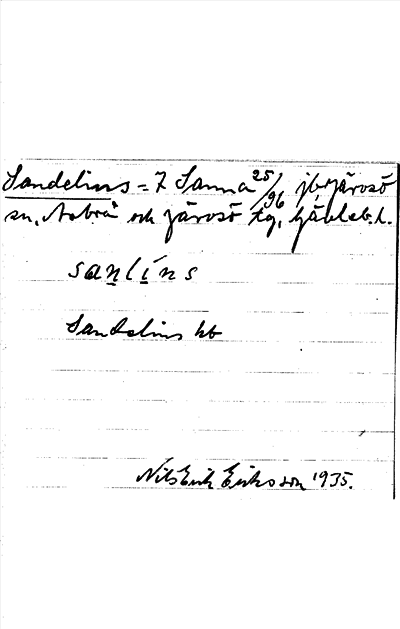 Sandelins = 7 Sanna 25/96 jb, Järvsö
sn, Arbrå och Järvsö tg, Gävleb. l.
sanlíns
Sandelins hb
Nils Erik Eriksson 1935.